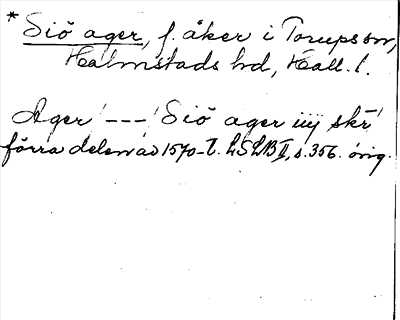 * Siö ager, f. åker i Torupson,
Halmstads hd, Hall. l.
Ager --- Siö ager iiij skr
förra delen av 1570-t. LSLB II, s. 356. orig.